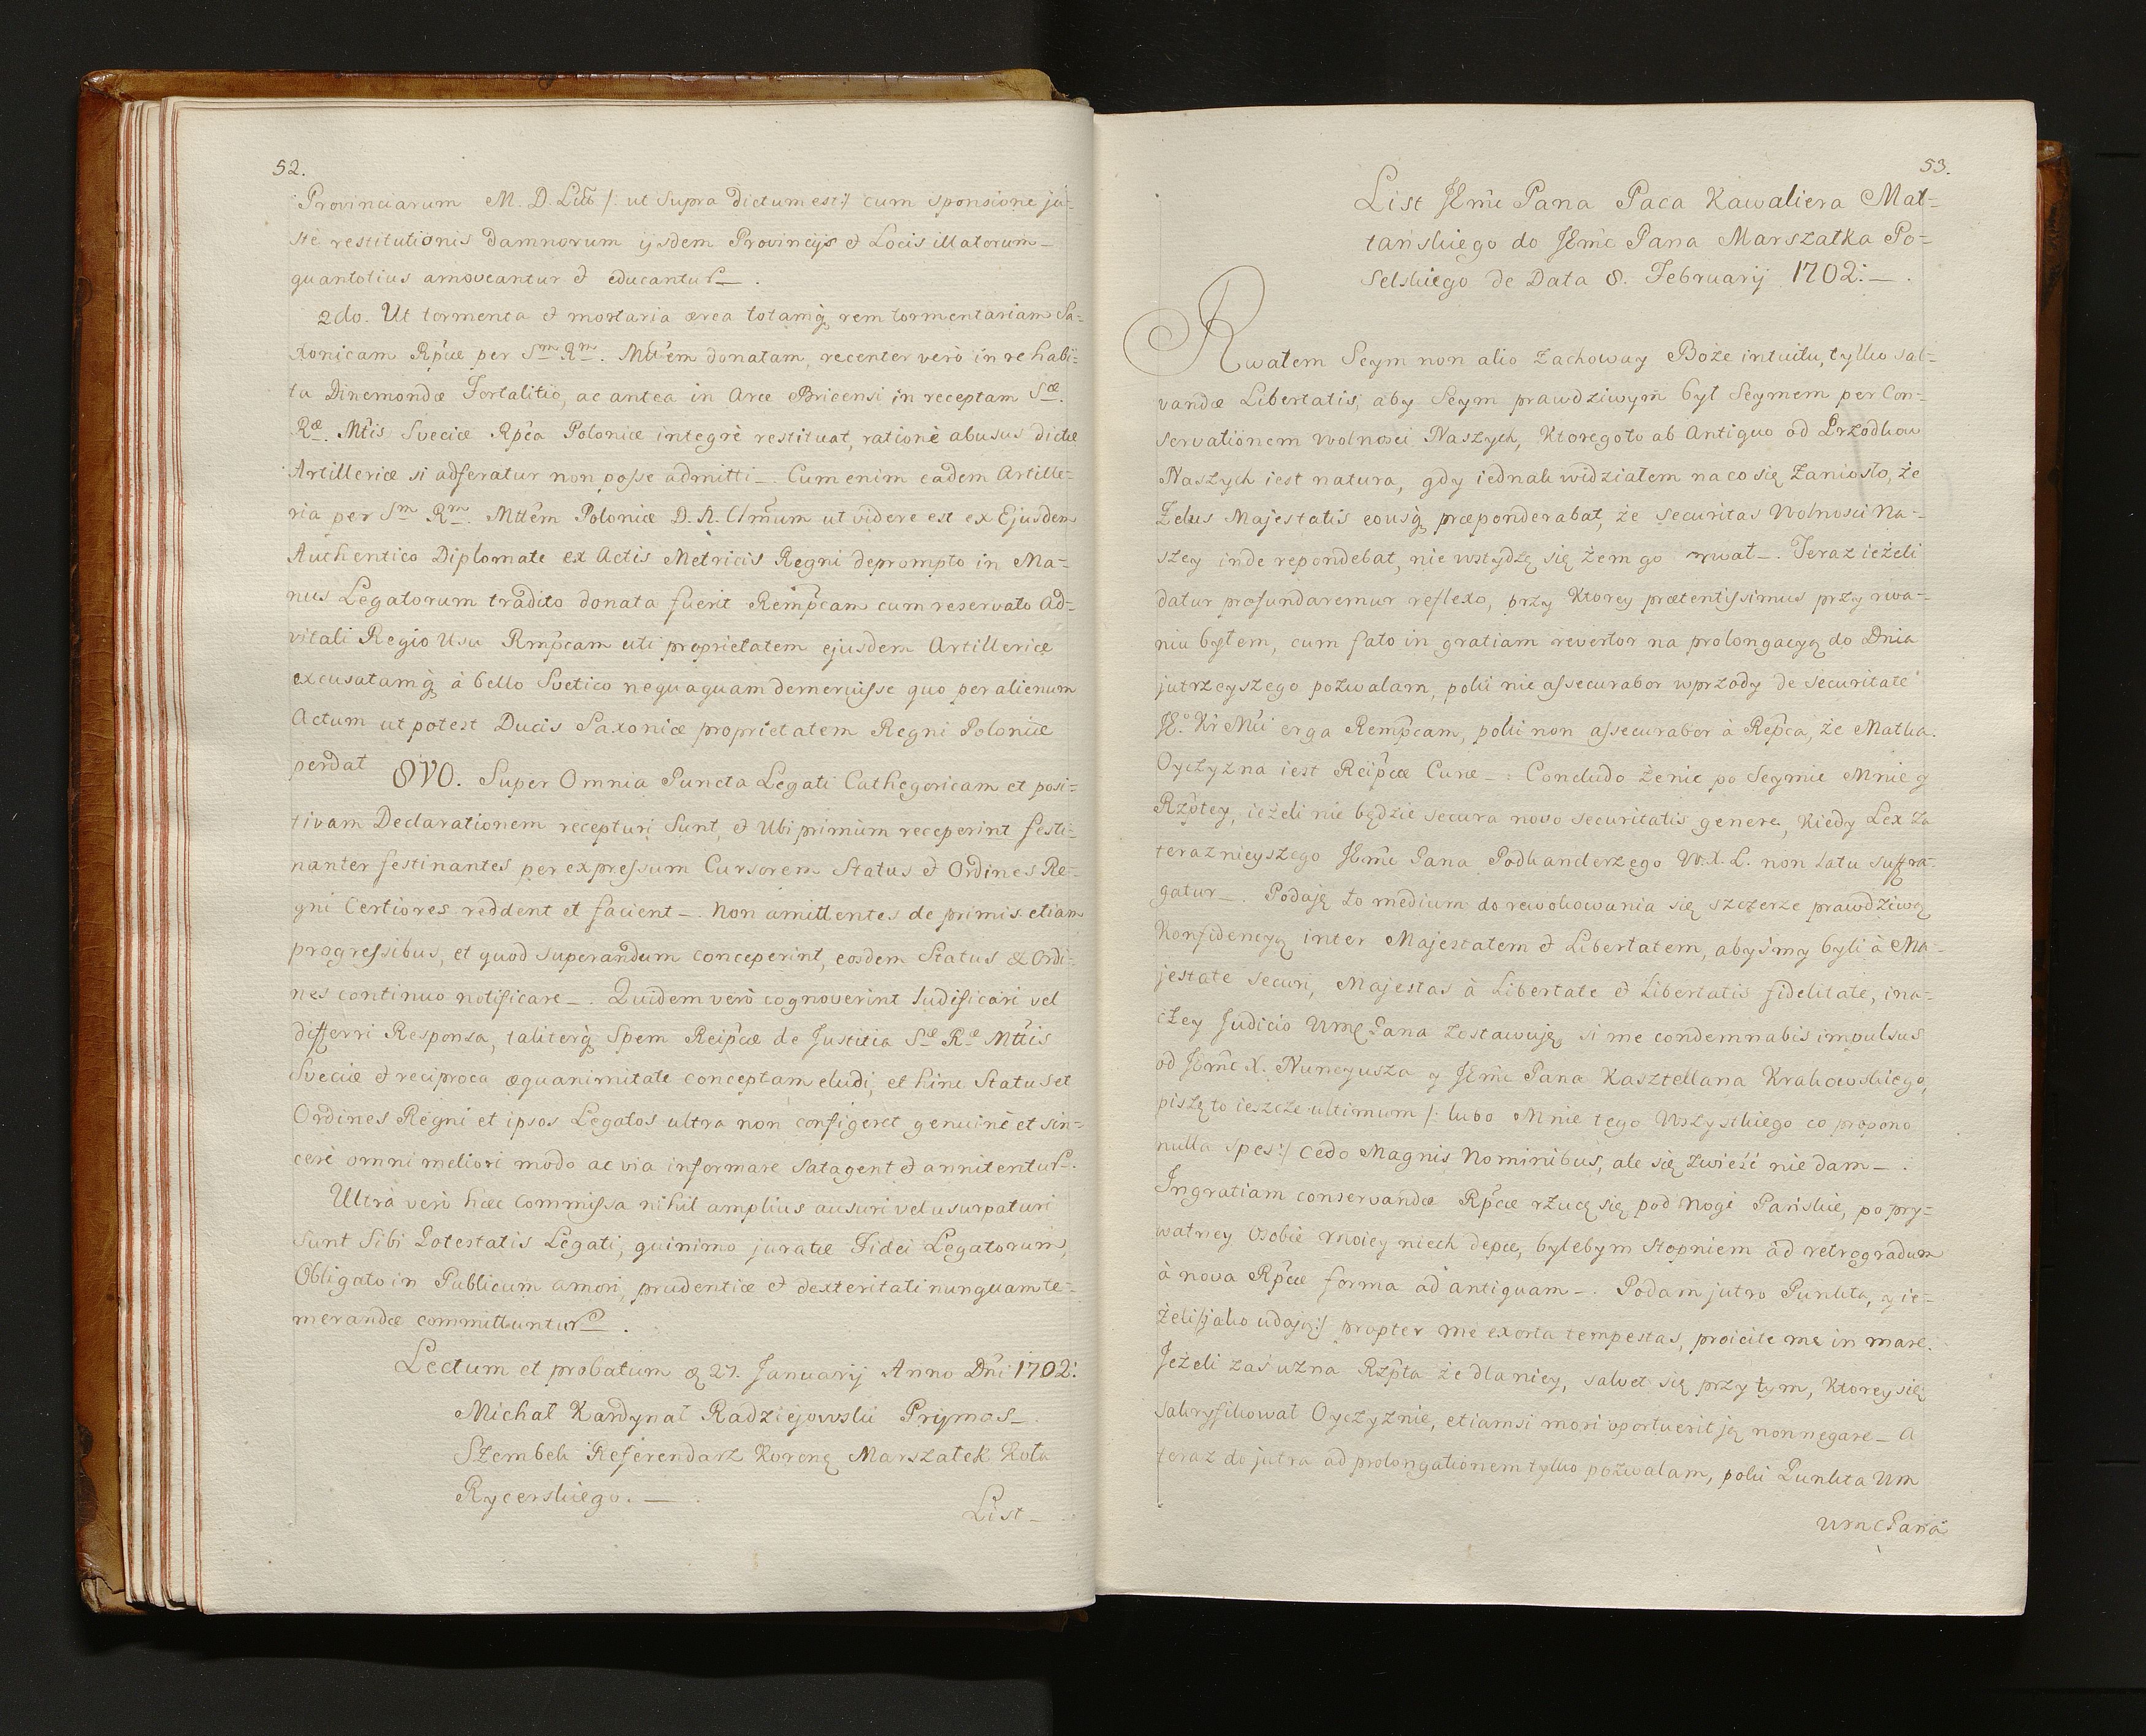 52.
Provinciarum M. D. Litt /: ut Supra dictum est :/ cum sponsione ju-
stè restitutionis damnorum ijsdem Provincijs et Locis illatorum
quantotius amoveantur et educantur.
2do. Ut tormenta et mortaria ærea totamq rem tormentariam Sa-
xonicam Rpcæ per Sm Rm. Mttem donatam, recenter verò in re habi-
ta Dinemondæ Fortalitio, ac antea in Arce Bricensi in receptam Sæ.
Ræ. Mtis Sveciæ Rpca Poloniæ integrè restituat, rationè abusus dictæ
Artilleriæ si adferatur non posse admitti. Cum enim eadem Artille-
ria per Sm Rm. Mttem Poloniæ D. N. Clmum ut videre est ex Ejusdem
Authentico Diplomate ex Actis Metricis Regni deprompto in Ma-
nus Legatorum tradito donata fuerit Rempcam cum reservato Ad-
vitali Regio Usu Rmpcam uti proprietatem ejusdem Artilleriæ
excusatamq à bello Svetico nequaquam demeruisse quo per alienum
Actum ut potest Ducis Saxoniæ proprietatem Regni Poloniæ
perdat 8vo. Super Omnia Puncta Legati Cathegoricam et posi-
tivam Declarationem recepturi Sunt, et Ubi primùm receperint festi-
nanter festinantes per expressum Cursorem Status et Ordines Re-
gni Certiores reddent et facient. Non amittentes de primis etiam
progressibus, et quod superandum conceperint, eosdem Status et Ordi-
nes continuo notificare. Quidem verò cognoverint ludificari vel
differri Responsa, taliterq Spem Reipcæ de Justitia Sæ Ræ Mttis
Sveciæ et reciproca æquanimitate conceptam eludi, et hinc Status et
Ordines Regni et ipsos Legatos ultra non configeret genuinè et sin-
cerè omni meliori modo ac via informare satagent et annitentur.
Ultrà verò hæc Commissa nihil amplius ausuri vel usurpaturi
sunt Sibi Potestatis Legati, quinimo juratæ Fidei Legatorum,
Obligato in Publicum amori, prudentiæ et dexteritati nunquam te-
merandæ committuntur.
Lectum et probatum 27. Januarij Anno Dni 1702:
Michał Kardynał Radziejowski Prymas
Szembek Referendarz Koronę Marszałek Koła
Rycerskiego.
List
53.
List JEmc Pana Paca Kawaliera Mal-
tańskiego do JEmc Pana Marszałka Po-
selskiego de Data 8. Februarij 1702.
Rwałem Seym non alio zachoway Boże intuitu, tylko sal-
vandæ Libertatis, aby Seym prawdziwym był Seymem per Con-
servationem wolności Naszych, ktoregoto ab Antiquo od Przodkow
Naszych iest natura, gdy iednak widziałem na co się zaniosło, że
Zelus Majestatis eousq præponderabat, że securitas Wolności Na-
szey inde repondebat, nie wstydzę się żem go rwał. Teraz ieżeli
datur profundaremur reflexo, przy ktorey prætentissimus przy rwa-
niu byłem, cum fato in gratiam revertor na prolongacyą do Dnia
jutrzeyszego pozwalam, poki nie assecurabor wprzody de securitate
JE.o Kr Mci erga Rempcam, poki non assecurabor à Repca, że Matka
Oyczyzna iest Reipcæ Curæ. Concludo że nic po Seymie Mnie y
Rzptey, ieżeli nie będzie secura novo securitatis genere, kiedy Lex za
teraznieyszego JEmc Pana Podkanderzego W. X. L. non latu suffra-
gatur. Podaję to medium do rewokowania się szczerze prawdziwą
Konfidencyą inter Majestatem et Libertatem, abyśmy byli à Ma-
jestate securi, Majestas à Libertate et Libertatis fidelitate, ina-
czey Judicio Umę Pana zostawuję, si me condemnabis impulsus
od JEmc X. Nuncyusza y JEmc Pana Kasztellana Krakowskiego,
piszę to ieszcze ultimum /: lubo Mnie tego Wszystkiego co propono
nulla spes :/ Cedo Magnis Nominibus, ale się zwieść nie dam.
Ingratiam conservandæ Rpcæ rzucę się pod Nogi Pańskie, po pry-
watney Osobie moiey niech depce, bylebym stopniem ad retrogradum
à nova Rpcæ forma ad antiquam. Podam jutro Punkta, y ie-
żeli /: jako udają :/ propter me exorta tempestas, proicite me in mare.
Jeżeli zaś uzna Rzpta że dla niey, salvet się przy tym, ktorey się
sakryfikował Oyczyznie, etiamsi mori oportuerit ją non negare. A
teraz do jutra ad prolongationem tylko pozwalam, poki Punkta Um
Umc Pana